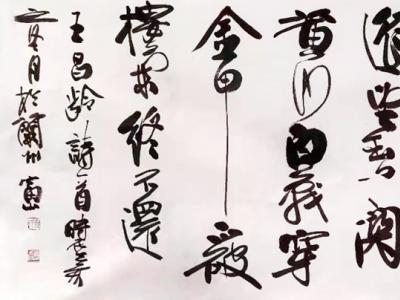 遥望玉關
黄沙百戰穿
金甲不破
樓蘭終不還
王昌龄詩一首時
之冬月於蘭州